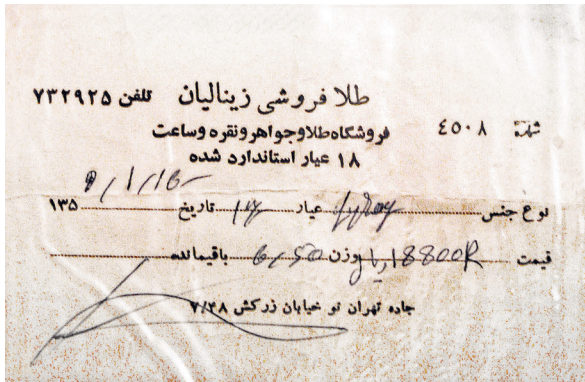 طلا فروشی زینالیان تلفن ۷۳۲۹۲۵
شماره ٤٥٠٨ فروشگاه طلا و جواهر و نقره و ساعت
۱۸ عیار استاندارد شده
نوع جنس عیار تاریخ ۱۳۵
قیمت 18800R ریال وزن 6,50 باقیمانده
جاده تهران نو خیابان زرکش ۷/۳۸